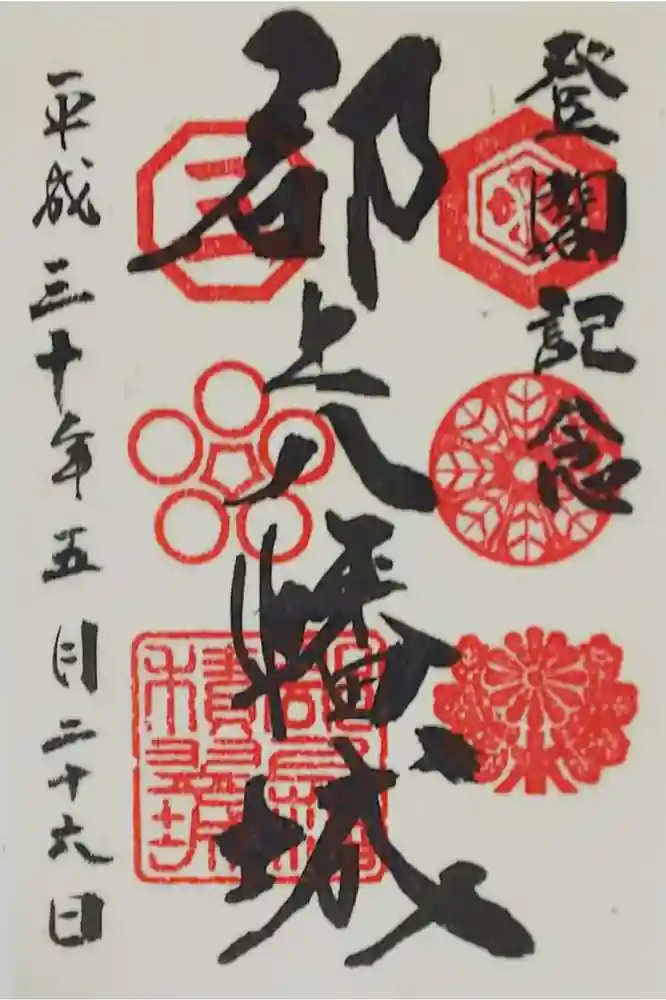 登閣記念
郡上八幡城
平成三十年五月二十六日